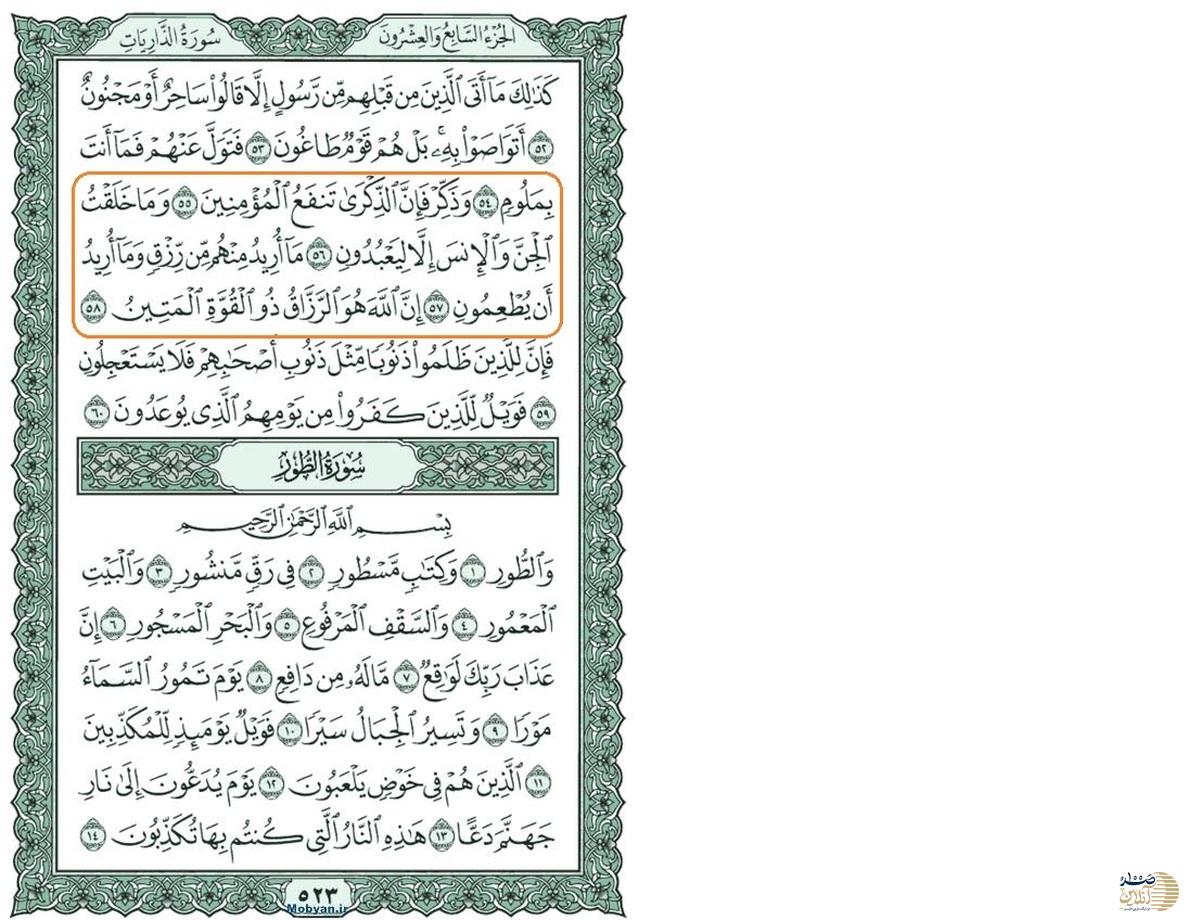 الجزء السابع والعشرون
سورة الذاريات
كَذَٰلِكَ مَآ أَتَى ٱلَّذِينَ مِن قَبۡلِهِم مِّن رَّسُولٍ إِلَّا قَالُواْ سَاحِرٌ أَوۡ مَجۡنُونٌ
٥٢ أَتَوَاصَوۡاْ بِهِۦۚ بَلۡ هُمۡ قَوۡمٞ طَاغُونَ ٥٣ فَتَوَلَّ عَنۡهُمۡ فَمَآ أَنتَ
بِمَلُومٖ ٥٤ وَذَكِّرۡ فَإِنَّ ٱلذِّكۡرَىٰ تَنفَعُ ٱلۡمُؤۡمِنِينَ ٥٥ وَمَا خَلَقۡتُ
ٱلۡجِنَّ وَٱلۡإِنسَ إِلَّا لِيَعۡبُدُونِ ٥٦ مَآ أُرِيدُ مِنۡهُم مِّن رِّزۡقٖ وَمَآ أُرِيدُ
أَن يُطۡعِمُونِ ٥٧ إِنَّ ٱللَّهَ هُوَ ٱلرَّزَّاقُ ذُو ٱلۡقُوَّةِ ٱلۡمَتِينُ ٥٨
فَإِنَّ لِلَّذِينَ ظَلَمُواْ ذَنُوبٗا مِّثۡلَ ذَنُوبِ أَصۡحَٰبِهِمۡ فَلَا يَسۡتَعۡجِلُونِ
٥٩ فَوَيۡلٞ لِّلَّذِينَ كَفَرُواْ مِن يَوۡمِهِمُ ٱلَّذِي يُوعَدُونَ ٦٠
سُورَةُ الطُّورِ
بِسۡمِ ٱللَّهِ ٱلرَّحۡمَٰنِ ٱلرَّحِيمِ
وَٱلطُّورِ ١ وَكِتَٰبٖ مَّسۡطُورٖ ٢ فِي رَقّٖ مَّنشُورٖ ٣ وَٱلۡبَيۡتِ
ٱلۡمَعۡمُورِ ٤ وَٱلسَّقۡفِ ٱلۡمَرۡفُوعِ ٥ وَٱلۡبَحۡرِ ٱلۡمَسۡجُورِ ٦ إِنَّ
عَذَابَ رَبِّكَ لَوَٰقِعٞ ٧ مَّا لَهُۥ مِن دَافِعٖ ٨ يَوۡمَ تَمُورُ ٱلسَّمَآءُ
مَوۡرٗا ٩ وَتَسِيرُ ٱلۡجِبَالُ سَيۡرٗا ١٠ فَوَيۡلٞ يَوۡمَئِذٖ لِّلۡمُكَذِّبِينَ
١١ ٱلَّذِينَ هُمۡ فِي خَوۡضٖ يَلۡعَبُونَ ١٢ يَوۡمَ يُدَعُّونَ إِلَىٰ نَارِ
جَهَنَّمَ دَعًّا ١٣ هَٰذِهِ ٱلنَّارُ ٱلَّتِي كُنتُم بِهَا تُكَذِّبُونَ ١٤
٥٢٣
Mobyan.ir
صدا
آنلاین